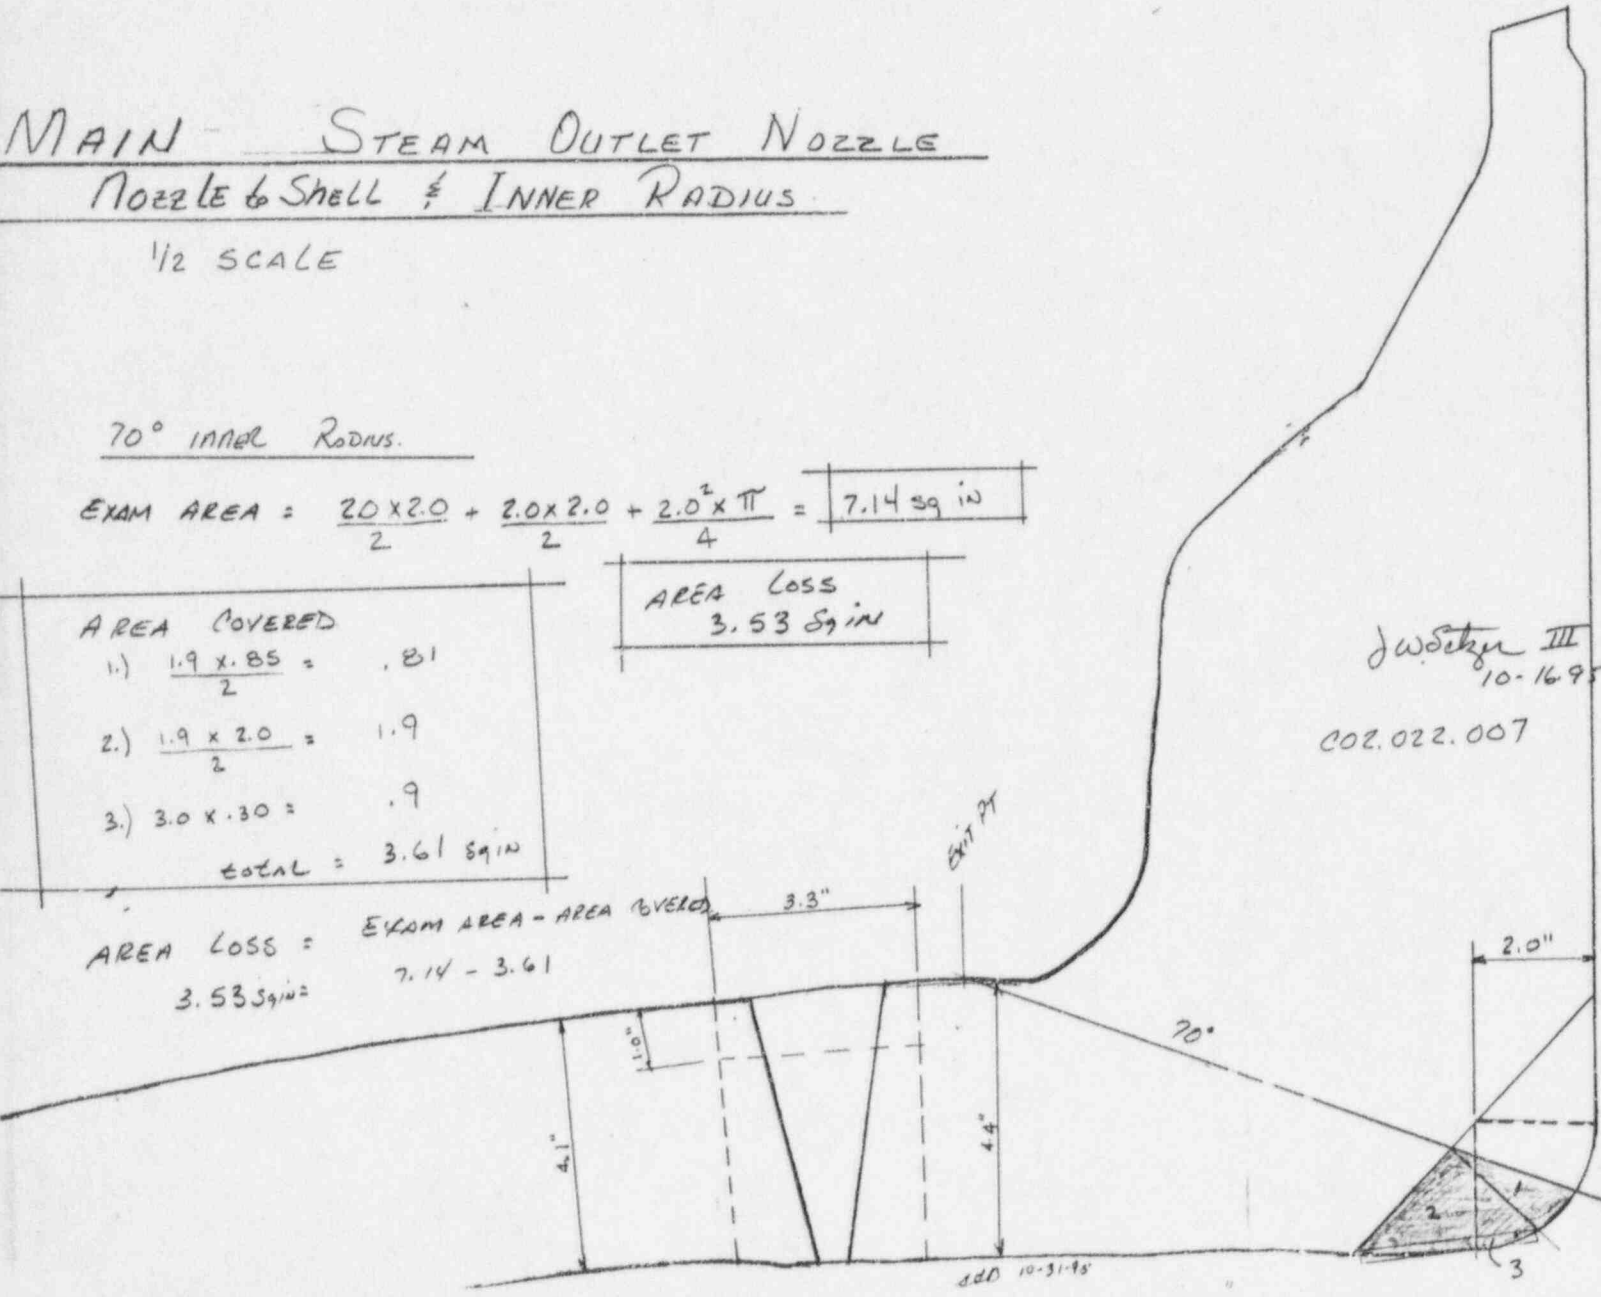 MAIN STEAM OUTLET NOZZLE
NOZZLE to SHELL & INNER RADIUS
1/2 SCALE
70° INNER RADIUS.
EXAM AREA = 2.0 x 2.0 / 2 + 2.0 x 2.0 / 2 + 2.0² x π / 4 = 7.14 sq in
AREA LOSS
3.53 Sq in
AREA COVERED
1.) 1.9 x .85 / 2 = .81
2.) 1.9 x 2.0 / 2 = 1.9
3.) 3.0 x .30 = .9
total = 3.61 sq in
AREA LOSS = EXAM AREA - AREA COVERED
3.53 Sq in = 7.14 - 3.61
III
10-16-95
C02.022.007
Exit PT
3.3"
2.0"
1.0"
4.1"
4.4"
70°
1
2
3
3
10-31-95